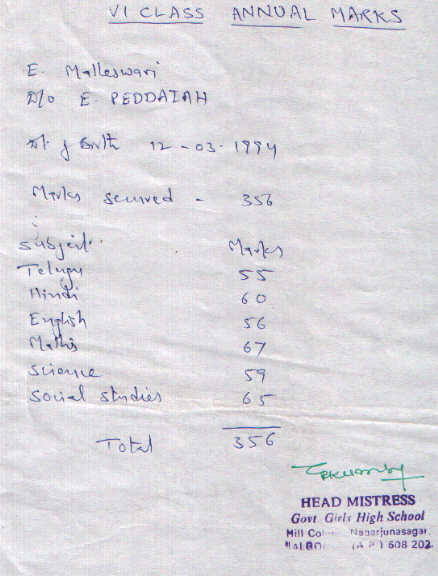 VI CLASS ANNUAL MARKS
E. Malleswari
D/o E. PEDDAIAH
Dt. of Birth 12-03-1994
Marks secured - 356
Subject Marks
Telugu 55
Hindi 60
English 56
Maths 67
Science 59
Social studies 65
Total 356
HEAD MISTRESS
Govt Girls High School
Mill Nagarjunasagar,
(A P) 508 202.